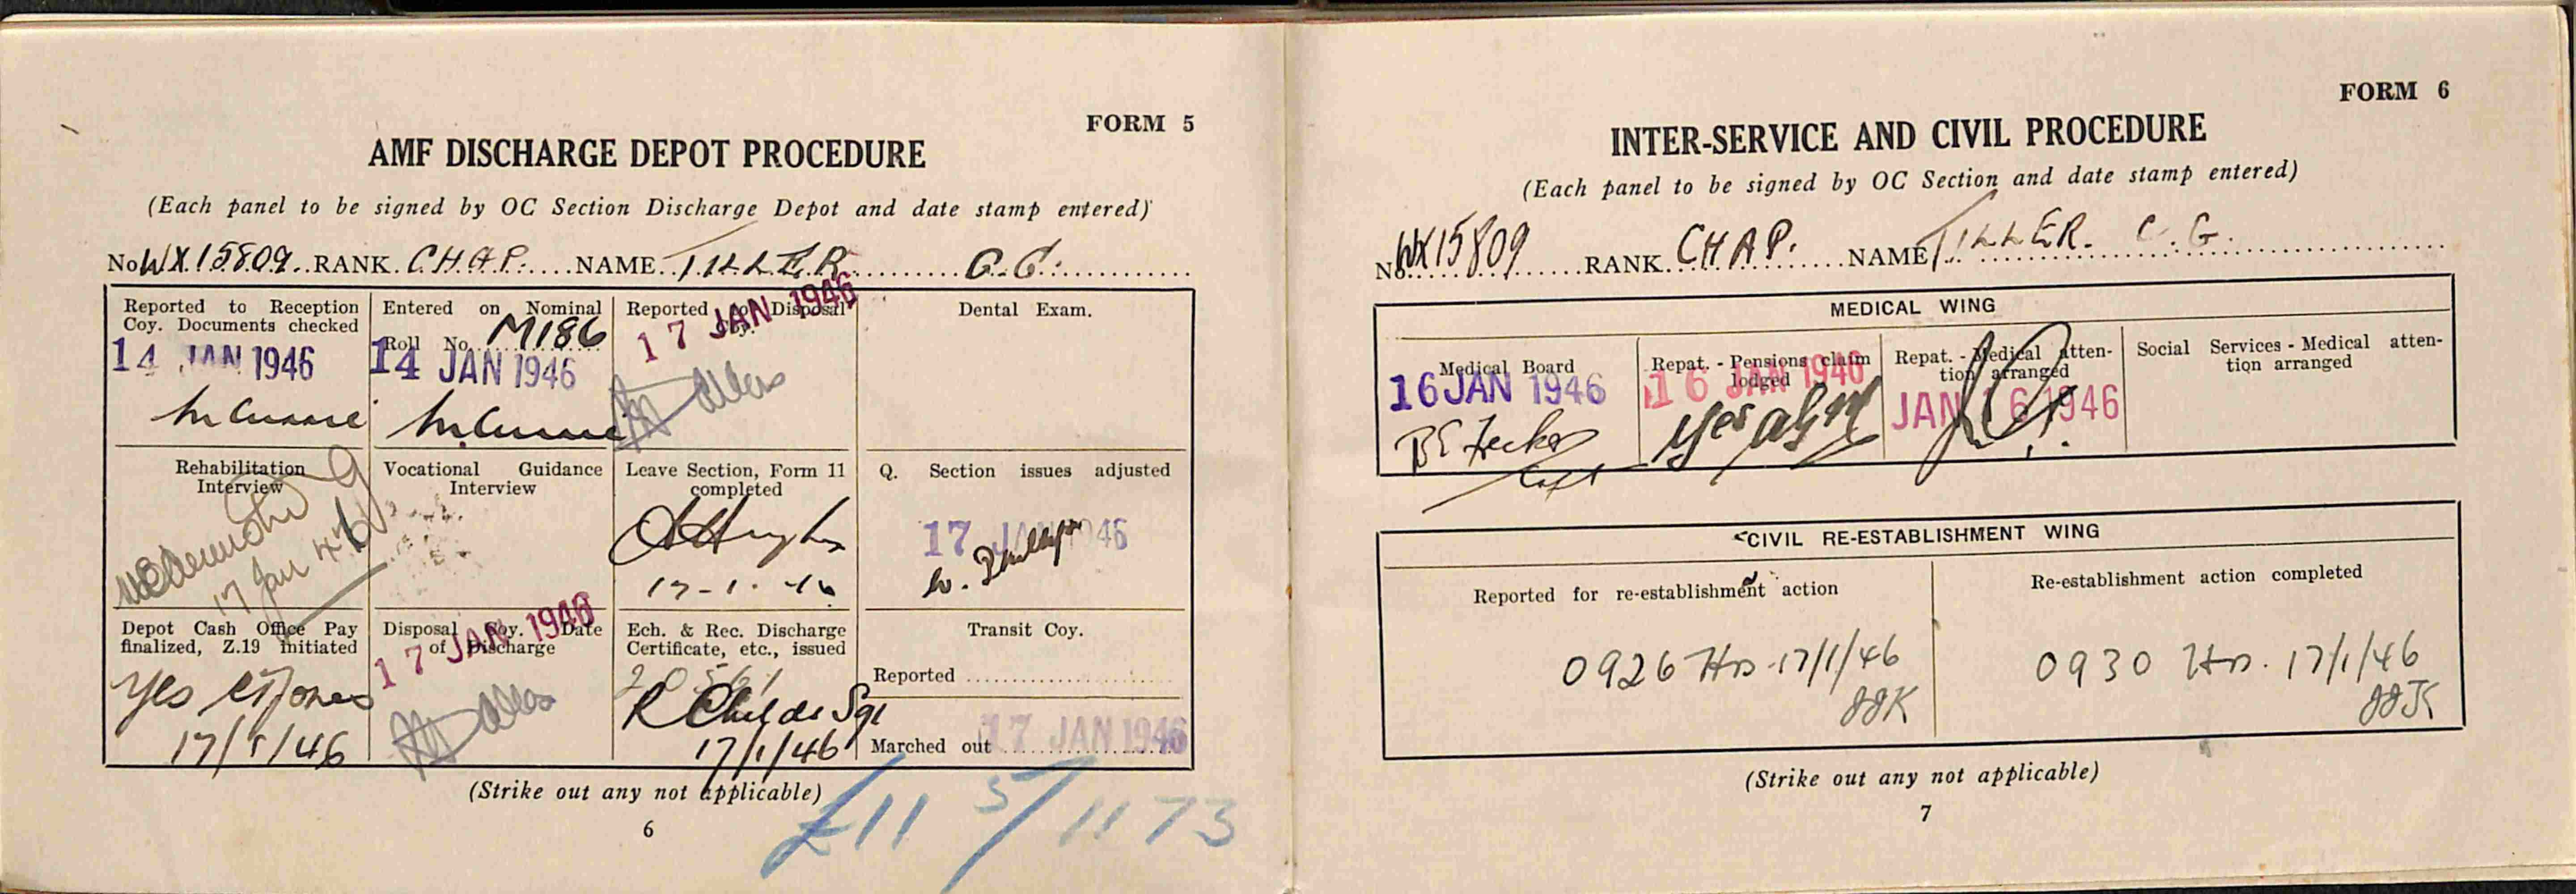 FORM 5
AMF DISCHARGE DEPOT PROCEDURE
(Each panel to be signed by OC Section Discharge Depot and date stamp entered)
No WX15809 RANK CHAP. NAME TILLER C.G.
Reported to Reception
Coy. Documents checked
14 JAN 1946
Entered on Nominal
Roll No. M186
14 JAN 1946
Reported to Disposal
Coy.
17 JAN 1946
Dental Exam.
Rehabilitation
Interview
17 Jan 46
Vocational Guidance
Interview
Leave Section, Form 11
completed
17-1-46
Q. Section issues adjusted
17 JAN 1946
Depot Cash Office Pay
finalized, Z.19 initiated
Yes Jones
17/1/46
Disposal Coy. Date
of Discharge
17 JAN 1946
Ech. & Rec. Discharge
Certificate, etc., issued
20561
R Childs Sgt
17/1/46
Transit Coy.
Reported
Marched out 17 JAN 1946
(Strike out any not applicable)
6
£11 5/ 1173
FORM 6
INTER-SERVICE AND CIVIL PROCEDURE
(Each panel to be signed by OC Section and date stamp entered)
No. WX15809 RANK CHAP. NAME TILLER. C.G.
MEDICAL WING
Medical Board
16 JAN 1946
Capt
Repat. - Pensions claim
lodged
16 JAN 1946
Yes
Repat. - Medical atten-
tion arranged
JAN 16 1946
Social Services - Medical atten-
tion arranged
CIVIL RE-ESTABLISHMENT WING
Reported for re-establishment action
0926 Hrs 17/1/46
JJK
Re-establishment action completed
0930 Hrs. 17/1/46
JJK
(Strike out any not applicable)
7